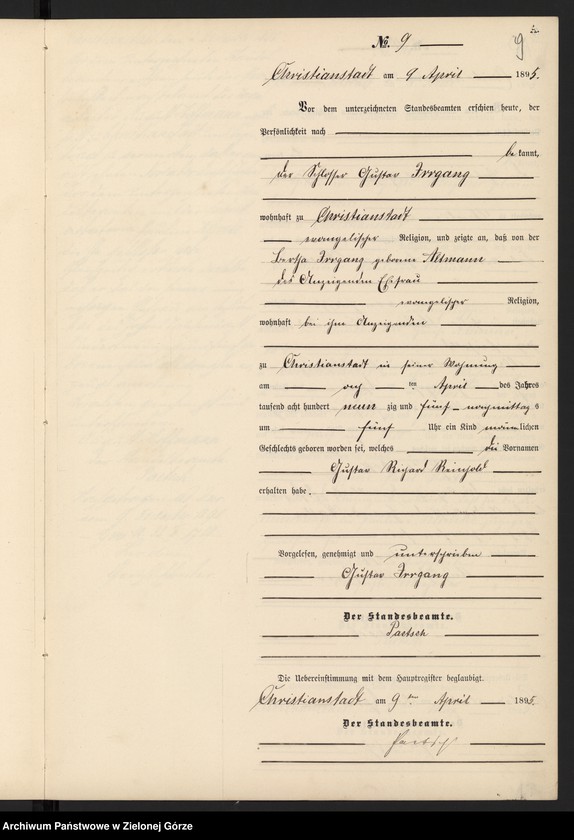 № 9
9
Christianstadt am 9 April 1895.
Vor dem unterzeichneten Standesbeamten erschien heute, der
Persönlichkeit nach
bekannt,
der Schlosser Gustav Irrgang
wohnhaft zu Christianstadt
evangelischer Religion, und zeigte an, daß von der
Bertha Irrgang geborene Altmann
des Anzeigenden Ehefrau
evangelischer Religion,
wohnhaft bei ihm Anzeigenden
zu Christianstadt in seiner Wohnung
am acht ten April des Jahres
tausend acht hundert neun zig und fünf nachmittags
um fünf Uhr ein Kind männlichen
Geschlechts geboren worden sei, welches die Vornamen
Gustav Richard Reinhold
erhalten habe.
Vorgelesen, genehmigt und unterschrieben
Gustav Irrgang
Der Standesbeamte.
Paetsch
Die Uebereinstimmung mit dem Hauptregister beglaubigt.
Christianstadt am 9 ten April 1895.
Der Standesbeamte.
Paetsch
Archiwum Państwowe w Zielonej Górze